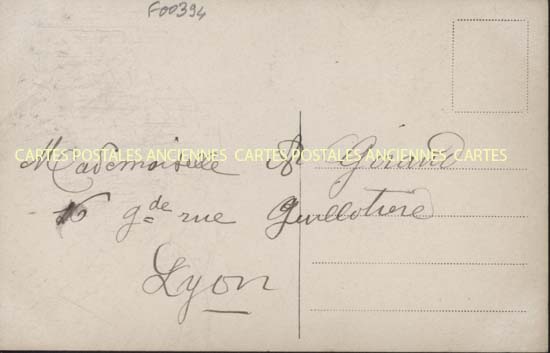 F00394
Mademoiselle Giraud
16 gde rue Guillotière
Lyon
CARTES POSTALES ANCIENNES CARTES POSTALES ANCIENNES CARTES